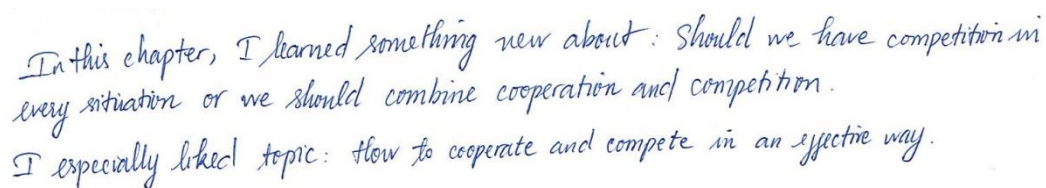 In this chapter, I learned something new about: Should we have competition in
every sitiuation or we should combine cooperation and competition.
I especially liked topic: How to cooperate and compete in an effective way.